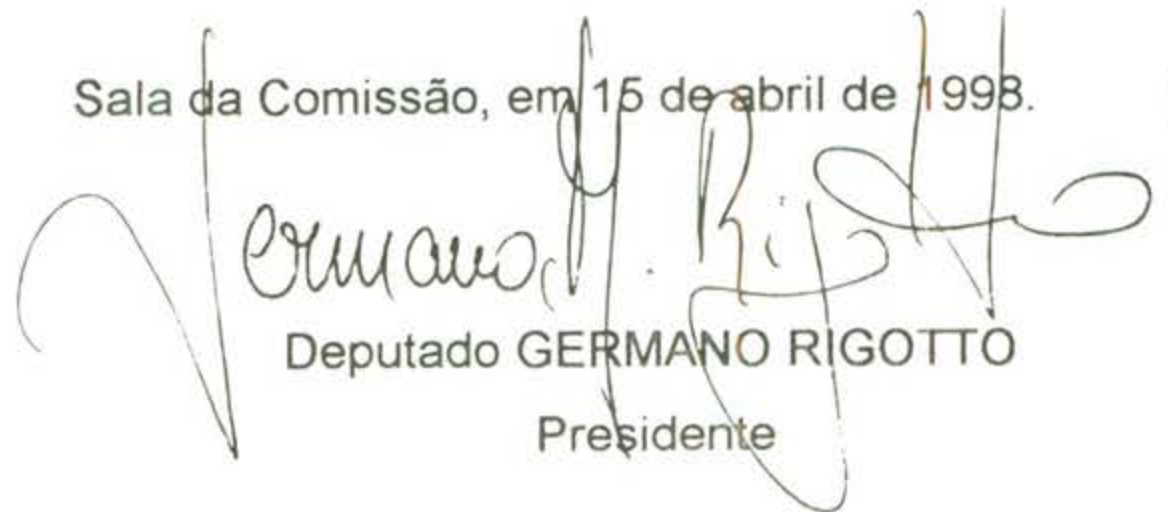 Sala da Comissão, em 15 de abril de 1998.
Germano Rigotto
Deputado GERMANO RIGOTTO
Presidente